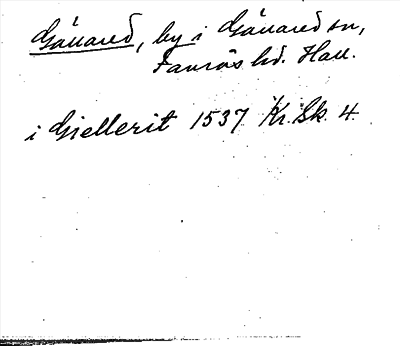 Gällared, by i Gällared sn,
Faurås hd. Hall.
i Giellerit 1537 Kr. Sk. 4